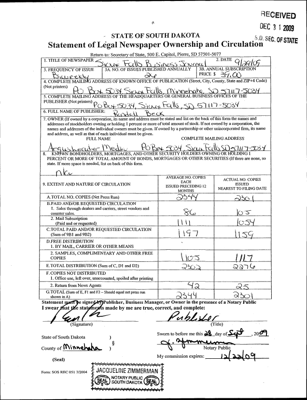 RECEIVED
DEC 1 2009
S.D. SEC. OF STATE
STATE OF SOUTH DAKOTA
Statement of Legal Newspaper Ownership and Circulation
Return to: Secretary of State, 500 E. Capitol, Pierre, SD 57501-5077
1. TITLE OF NEWSPAPER Sioux Falls Business Journal
2. DATE
3. FREQUENCY OF ISSUE
3A. NO. OF ISSUES PUBLISHED ANNUALLY
3B. ANNUAL SUBSCRIPTION PRICE $
4. COMPLETE MAILING ADDRESS OF KNOWN OFFICE OF PUBLICATION (Street, City, County, State and ZIP+4 Code)
(Not printers)
PO Box 5034, Sioux Falls, Minnehaha, SD 57117-5034
5. COMPLETE MAILING ADDRESS OF THE HEADQUARTERS OF GENERAL BUSINESS OFFICES OF THE
PUBLISHER (Not printers)
PO Box 5034, Sioux Falls, SD 57117-5034
6. FULL NAME OF PUBLISHER: Randell Beck
7. OWNER (If owned by a corporation, its name and address must be stated and also
FULL NAME
COMPLETE MAILING ADDRESS
Argus Leader Media PO Box 5034 Sioux Falls, SD 57117-5034
8. KNOWN BONDHOLDERS, MORTGAGEES AND OTHER SECURITY HOLDERS OWNING OR HOLDING 1
PERCENT OR MORE OF TOTAL AMOUNT OF BONDS, MORTGAGES OR OTHER SECURITIES (If there are none, so
state. If more space is needed, list on back of this form.)
9. EXTENT AND NATURE OF CIRCULATION
AVERAGE NO. COPIES EACH ISSUED PRECEDING 12 MONTHS
ACTUAL NO. COPIES ISSUED NEAREST TO FILING DATE
A. TOTAL NO. COPIES (Net Press Run) 2344 2301
B. PAID AND/OR REQUESTED CIRCULATION
1. Sales through dealers and carriers, street vendors and
counter sales. 86 105
2. Mail Subscription
(Paid and/or requested) 1111 1054
C. TOTAL PAID AND/OR REQUESTED CIRCULATION
(Sum of 9B1 and 9B2) 1197 1159
D. FREE DISTRIBUTION
1. BY MAIL, CARRIER OR OTHER MEANS
2. SAMPLES, COMPLIMENTARY AND OTHER FREE
COPIES 1105 1117
E. TOTAL DISTRIBUTION (Sum of C, D1 and D2) 2302 2276
F. COPIES NOT DISTRIBUTED
1. Office use, left over, unaccounted, spoiled after printing
2. Return from News Agents 42 25
G. TOTAL (Sum of E, F1 and F2 - Should equal net press run
shown in A) 2344 2301
Statement must be signed by Publisher, Business Manager, or Owner in the presence of a Notary Public
I swear that the statements made by me are true, correct, and complete:
Publisher
(Signature)
(Title)
State of South Dakota )
Sworn to before me this 28 day of Sept, 2009
County of Minnehaha )
(Notary Public)
(Seal)
My commission expires: 12/22/09
JACQUELINE ZIMMERMAN
NOTARY PUBLIC
SOUTH DAKOTA